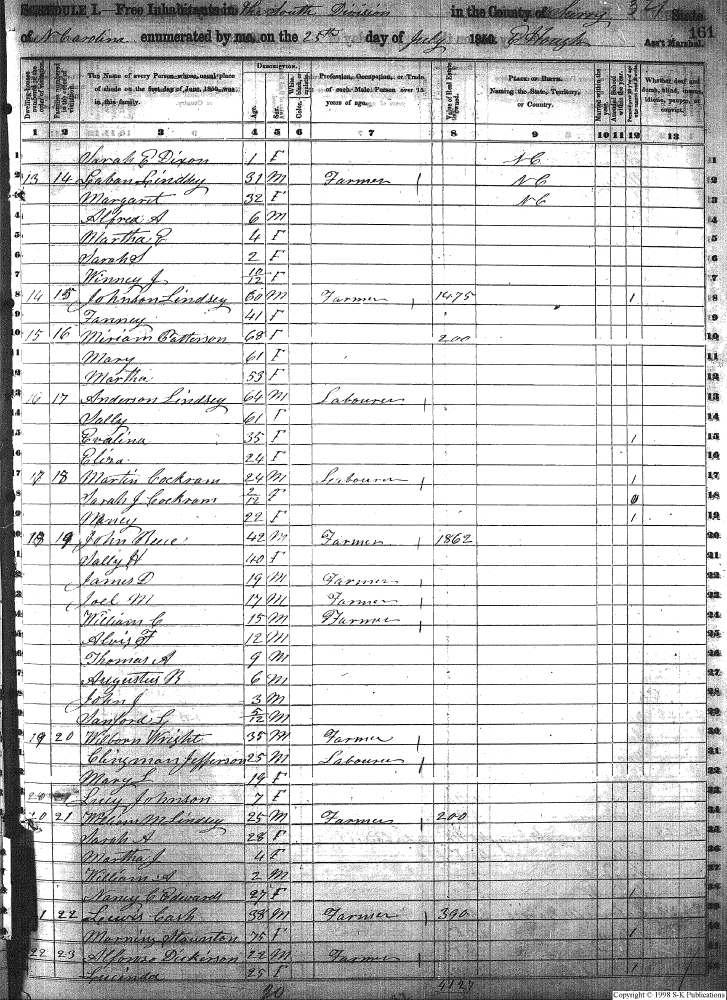 SCHEDULE I.—Free Inhabitants in the South Division in the County of Surry State
of N Carolina enumerated by me, on the 25th day of July 1850. E Hough Ass't Marshal. 161
Dwelling-houses numbered in the order of visitation.
Families numbered in the order of visitation.
The Name of every Person whose usual place of abode on the first day of June, 1850, was in this family.
Description.
Age.
Sex.
Color. White, black, or mulatto.
Profession, Occupation, or Trade of each Male Person over 15 years of age.
Value of Real Estate owned.
Place of Birth. Naming the State, Territory, or Country.
Married within the year.
Attended School within the year.
Whether deaf and dumb, blind, insane, idiotic, pauper, or convict.
1 2 3 4 5 6 7 8 9 10 11 12 13
1 Sarah E Dixon 1 F NC 1
2 13 14 Laban Lindsey 31 M Farmer 1 NC 2
3 Margaret 32 F NC 3
4 Alfred A 6 M 4
5 Martha E 4 F 5
6 Sarah S 2 F 6
7 Winney J 10/12 F 7
8 14 15 Johnson Lindsey 60 M Farmer 1 1475 1 8
9 Fanney 41 F 9
10 15 16 Miriam Patterson 68 F 200 10
11 Mary 61 F 11
12 Martha 53 F 12
13 16 17 Anderson Lindsey 64 M Labourer 1 13
14 Sally 61 F 14
15 Evalina 35 F 1 15
16 Eliza 24 F 16
17 17 18 Martin Cockram 24 M Labourer 1 1 17
18 Sarah J Cockram 2/12 F 18
19 Nancy 22 F 1 19
20 18 19 John Reece 42 M Farmer 1 1862 20
21 Sally H 40 F 21
22 James D 19 M Farmer 22
23 Joel M 17 M Farmer 23
24 William C 15 M Farmer 24
25 Alvis F 12 M 25
26 Thomas A 9 M 26
27 Augustus B 6 M 27
28 John J 3 M 28
29 Sanford L 5/12 M 29
30 19 20 Wilborn Wright 35 M Farmer 30
31 Clingman Jefferson 25 M Labourer 31
32 Mary L 19 F 32
33 Lucy Johnson 7 F 33
34 20 21 William M Lindsey 25 M Farmer 1 200 34
35 Sarah A 28 F 35
36 Martha J 4 F 36
37 William A 2 M 37
38 Nancy C Edwards 27 F 1 38
39 22 Lewis Cash 38 M Farmer 1 390 39
40 Morning Staunton 75 F 1 40
41 22 23 Alfonso Dickerson 22 M Farmer 41
42 Lucinda 25 F 1 42
20 4127
Copyright © 1998 S-K Publications